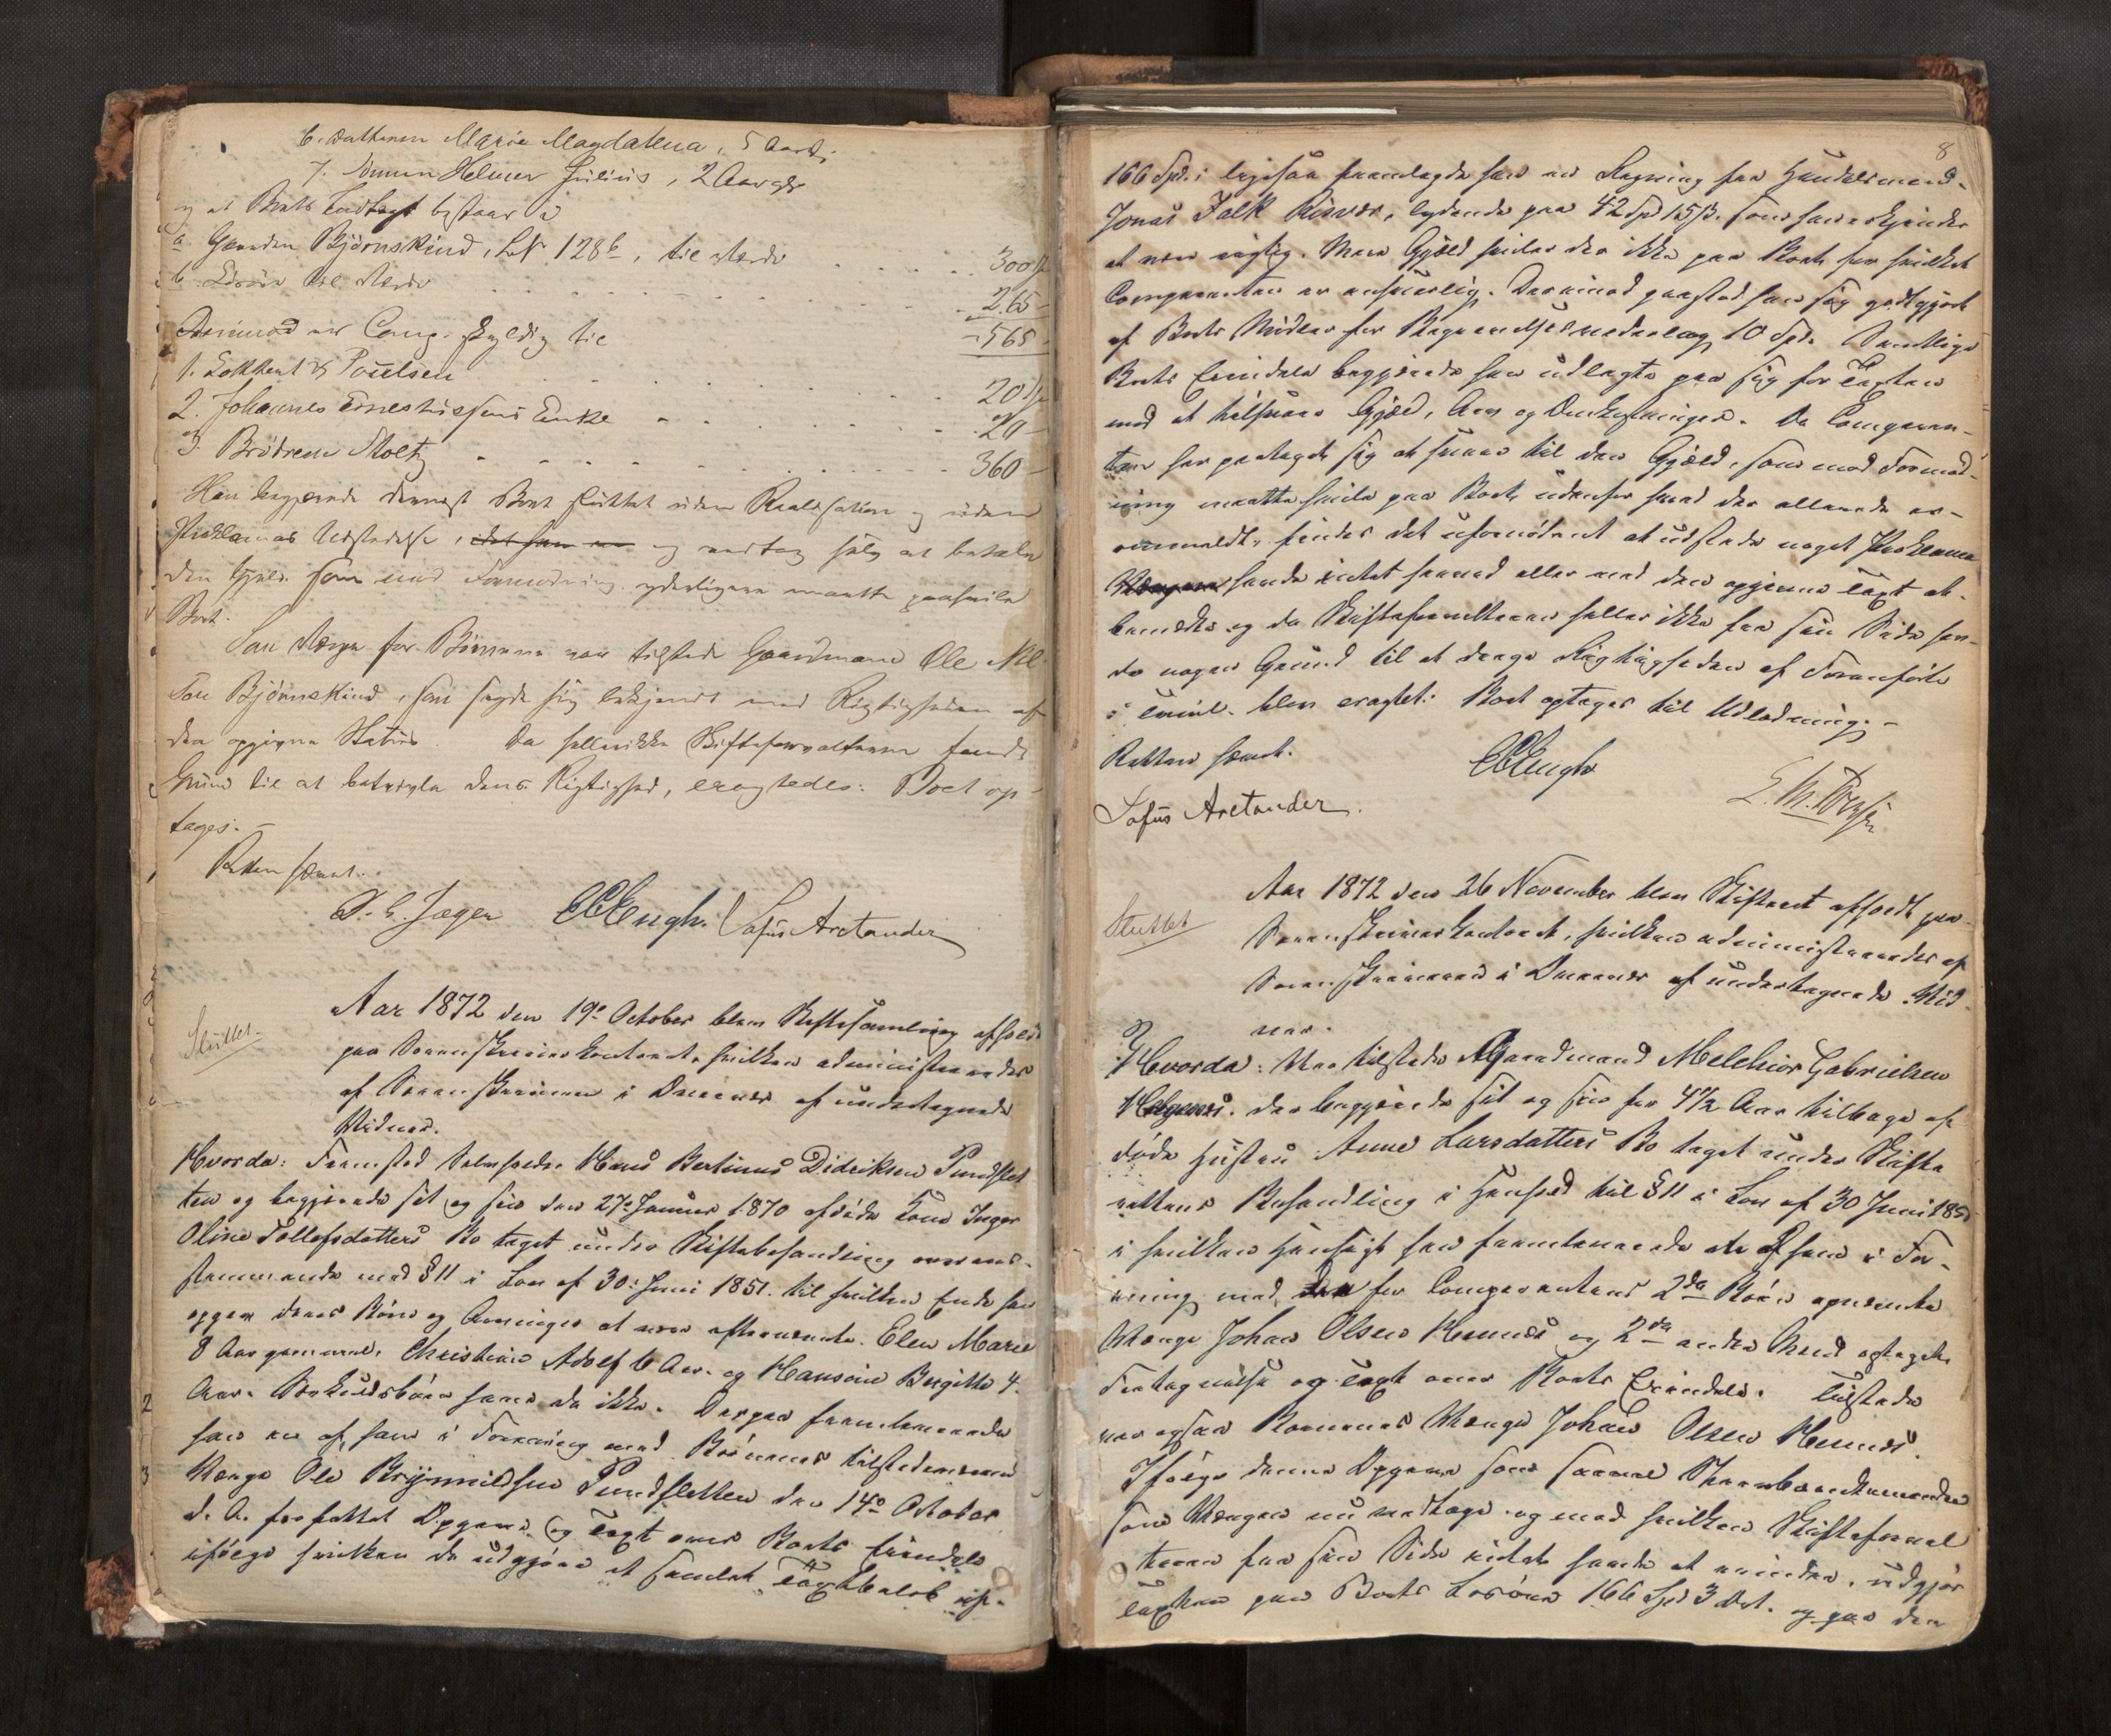 6. Datteren Marie Magdalena, 5 Aar
7. Sønnen Helmer Julius, 2 Aar
og at Boets Indtægt bestaar i
a. Gaarden Björnskind, LN 128b, til Værdi 300 Sp
b. Lösöre til Værdi 265 -
- 565 -
Derimod er Comp. skyldig til
1. Lokkert & Poulsen 20 Sp
2. Johannes Ernestussens Enke 20 -
og 3. Brödrene Moltz 360 -
Han begjærede dernæst Boet sluttet uden Realisation og uden
Proklamas Udstedelse, og vedtog selv at betale
den Gjæld som mod Formodning yderligere maatte paahvile
Boet.
Som Værge for Börnene var tilstede Gaardmand Ole Nil-
sen Björnskind, som sagde sig bekjendt med Rigtigheden af
den opgivne Status. Da heller ikke Skifteforvalteren fandt
Grund til at betvivle dens Rigtighed, eragtedes: Boet op-
tages. -
Retten hævet.
CCEngh. Sofus Arctander
Sluttet.
Aar 1872 den 19de October blev Skiftesamling afholdt
paa Sorenskriverkontoret, hvilken administreredes
af Sorenskriveren i Overvær af undertegnede
Vidner.
Hvorda: Fremstod Selveier Hans Bertinus Didriksen Pundslet
ten og begjærede sit og sin den 27de Januar 1870 afdöde Kone Inger
Oline Tollefsdatters Bo taget under Skiftebehandling overens-
stemmende med § 11 i Lov af 30. Juni 1851. til hvilken Ende han
opgav deres Börn og Arvinger at være efternævnte. Elen Marie
8 Aar gammel, Christian Adolf 6 Aar. og Hansine Bergitte 4.
Aar. Særkuldsbörn havde de ikke. Derpaa fremleverede
han en af ham i Forening med Börnenes tilstedeværende
Værge Ole Brynnildsen Pundsletten den 14de October
d. A. forfattet Opgave og Taxt over Boets Eiendele
ifölge hvilken de udgjöre et samlet Taxtbelöb af.
8
166 Spd.; ligesaa fremlagde han en Regning fra Handelsmand
Jonas Falk Risvær, lydende paa 42 Spd 15 ß. som han erkjendte
at være rigtig. Mere Gjæld hviler der ikke paa Boet for hvilket
Comparenten er ansvarlig. Derimod paastod han sig godtgjort
af Boets Midler for Begravelses 10 Spd. Samtlige
Boets Eiendele begjærede han udlagte paa sig for Taxten
mod at tilsvare Gjæld, Arv og Omkostninger. Da Comparen-
ten har paataget sig at svare til den Gjæld, som mod Formod-
ning maatte hvile paa Boet, udenfor hvad der allerede er
anmeldt, findes det ufornödent at udstede noget Proklama
havde intet herved eller ved den opgivne Taxt at
bemærke og da Skifteforvalteren heller ikke fra sin Side fan-
dt nogen Grund til at drage Rigtigheden af Foranförte
i Tvivl. blev eragtet: Boet optages til Udlodning. -
Retten hævet.
CCEngh
Sofus Arctander.
Sluttet
Aar 1872 den 26 November blev Skifteret afholdt paa
Sorenskriverkontoret, hvilken administreredes af
Sorenskriveren i Overvær af undertegnede Vid-
ner.
Hvorda: Var tilstede Gaardmand Melchior Gabrielsen
der begjærede sit og sin for 4½ Aar tilbage af-
döde Hustru Anne Larsdatters Bo taget under Skifte
rettens Behandling i Henhold til § 11 i Lov af 30 Juni 185
i hvilken Henseende han fremleverede den af ham i For-
ening med for Comparentens 2de Börn opnævnte
Værge Johan Olsen Hemnes og 2de andre Mænd optagne
Fortegnelse og Taxt over Boets Eiendele. Tilstede
var ogsaa Börnenes Værge Johan Olsen Hemnes.
Ifölge denne Opgave som
som Værgen nu vedtager og mod hvilken Skifteforval
teren fra sin Side intet havde at erindre, udgjör
Taxten paa Boets Lösöre 166 Spd 3 Ort. og paa den